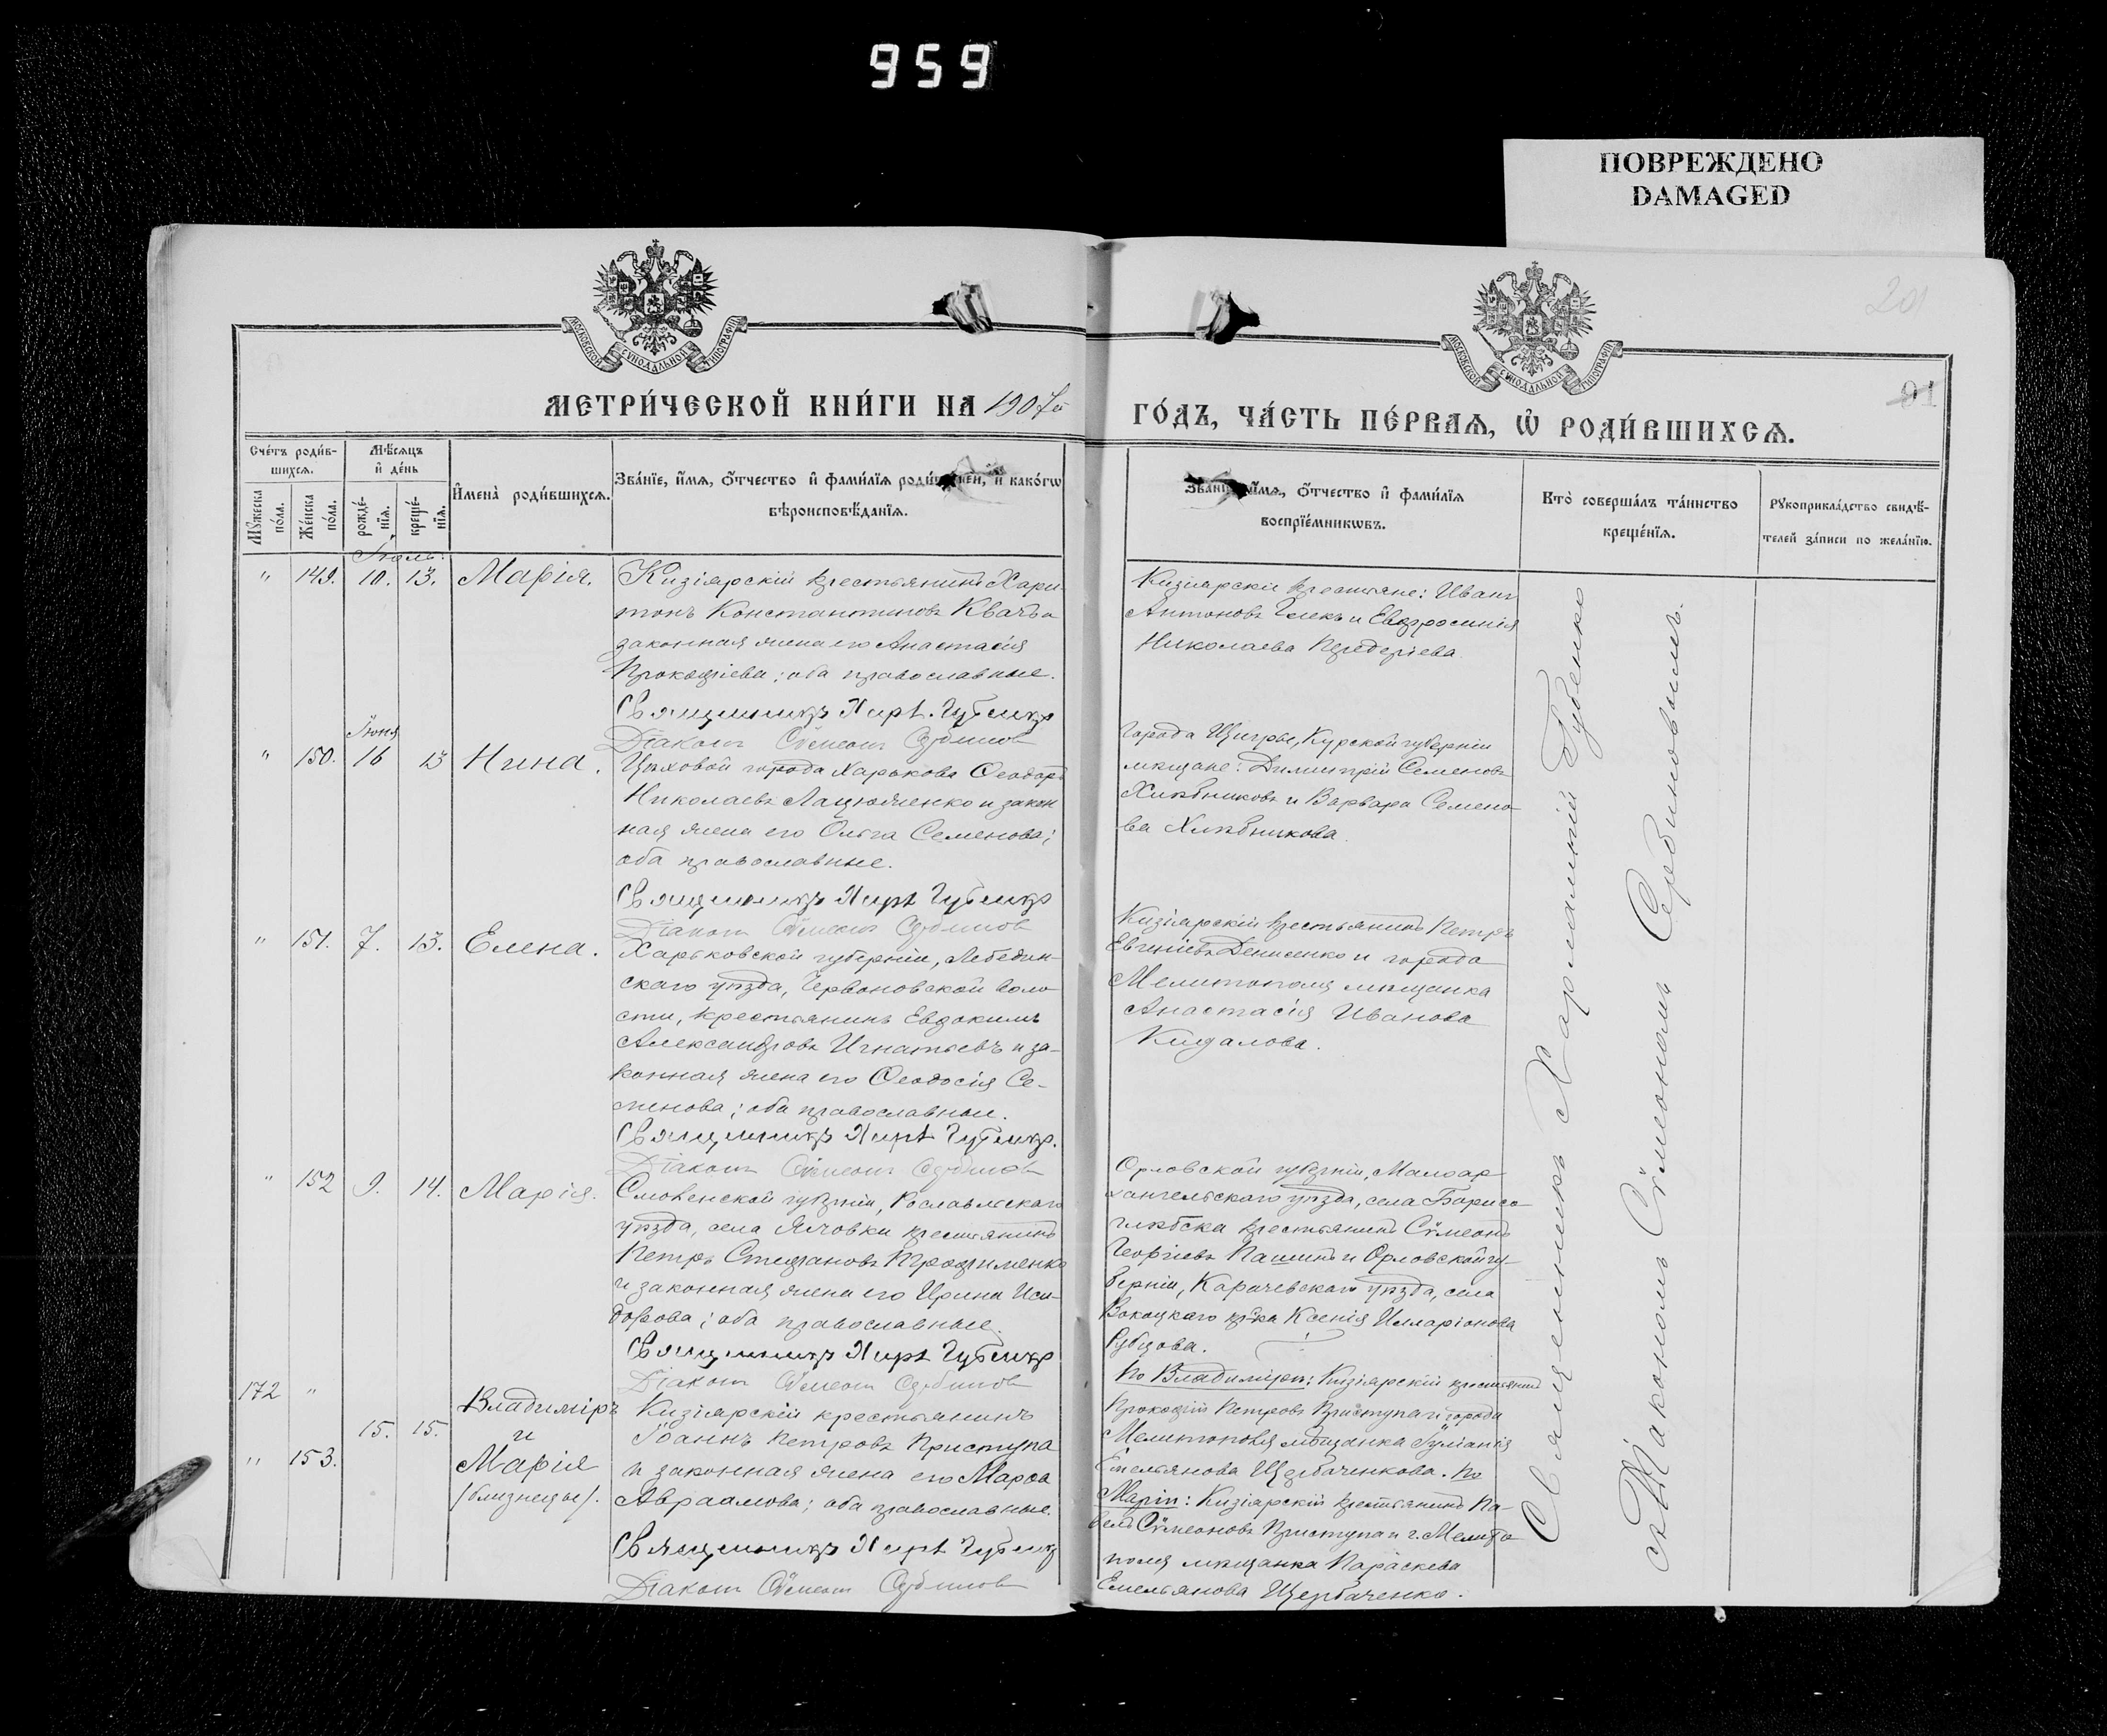 959
ПОВРЕЖДЕНО
DAMAGED
МОСКОВСКОЙ СѴНОДАЛЬНОЙ ТИПОГРАФІИ
МОСКОВСКОЙ СѴНОДАЛЬНОЙ ТИПОГРАФІИ
201
МЕТРИ́ЧЕСКОЙ КНИ́ГИ НА 1907й
ГО́ДЪ, ЧА́СТЬ ПЕ́РВАѦ, Ѡ҆ РОДИ́ВШИХСѦ.
Сче́тъ роди́в-
шихсѧ.
Мѣ́сѧцъ
и҆ де́нь
Мꙋ́жеска
по́ла.
Же́нска
по́ла.
рожде́-
нїѧ.
креще́-
нїѧ.
И҆мена̀ роди́вшихсѧ.
Зва́нїе, и҆́мѧ, о҆́тчество и҆ фами́лїѧ и҆ како́гѡ
вѣроисповѣ́данїѧ.
и҆́мѧ, о҆́тчество и҆ фами́лїѧ
воспрїе́мникѡвъ.
Кто̀ соверша́лъ та́инство
креще́нїѧ.
Рꙋкоприкла́дство свидѣ́-
телей за́писи по жела́нїю.
Іюль.
" 149. 10. 13. Марія.
Кизіярскій крестьянинъ Хари-
тонъ Константиновъ Квачъ и
законная жена его Анастасія
Прокофіева; оба православные.
Священникъ Харл. Губенко
Діаконъ Сѵмеонъ Сербиновъ
Кизіярскіе крестьяне: Иванъ
Антоновъ Гаекъ и Евфросинія
Николаева
Іюня
" 150. 16 13 Нина.
Цѣховой города Харькова Ѳеодоръ
Николаевъ и закон
ная жена его Ольга Семенова;
оба православные.
Священникъ Харл. Губенко
Діаконъ Сѵмеонъ Сербиновъ
Города Щигры, Курской губерніи
мѣщане: Димитрій Семеновъ
Хлѣбниковъ и Варвара Семено-
ва Хлѣбникова.
" 151. 7. 13. Елена.
Харьковской губерніи, Лебедин-
скаго уѣзда, Червоновской воло
сти, крестьянинъ Евдокимъ
Александровъ Игнатьевъ и за-
конная жена его Ѳеодосія Се-
менова; оба православные.
Священникъ Харл. Губенко.
Діаконъ Сѵмеонъ Сербиновъ
Кизіярскій крестьянинъ Петръ
Евгеніевъ Денисенко и города
Мелитополя мѣщанка
Анастасія Иванова
Кидалова.
" 152 9. 14. Марія.
Смоленской губерніи, Рославльскаго
уѣзда, села крестьянинъ
Петръ Стефановъ Трофименко
и законная жена его Ирина Иси-
дорова; оба православные.
Священникъ Харл. Губенко
Діаконъ Сѵмеонъ Сербиновъ
Орловской губерніи, Малоар-
хангельскаго уѣзда, села Борисо-
глѣбска крестьянинъ Сѵмеонъ
Георгіевъ Пашинъ и Орловской гу-
берніи, Карачевскаго уѣзда, села
кр-ка Ксенія Илларіонова
Рубцова.
172 " Владиміръ
15. 15. и
" 153. Марія
/близнецы/.
Кизіярскій крестьянинъ
Іоаннъ Петровъ Приступа
и законная жена его Марѳа
Авраамова; оба православные.
Священникъ Харл. Губенко
Діаконъ Сѵмеонъ Сербиновъ
По Владиміру: Кизіярскій крестьянинъ
Прокофій Петровъ Приступа и города
Мелитополя мѣщанка Іуліанія
Емельянова Щербаченкова. По
Маріи: Кизіярскій крестьянинъ Па-
велъ Сѵмеоновъ Приступа и г. Мелито
поля мѣщанка Параскева
Емельянова Щербаченко.
Священникъ Харлампій Губенко
съ Діакономъ Сѵмеономъ Сербиновымъ.